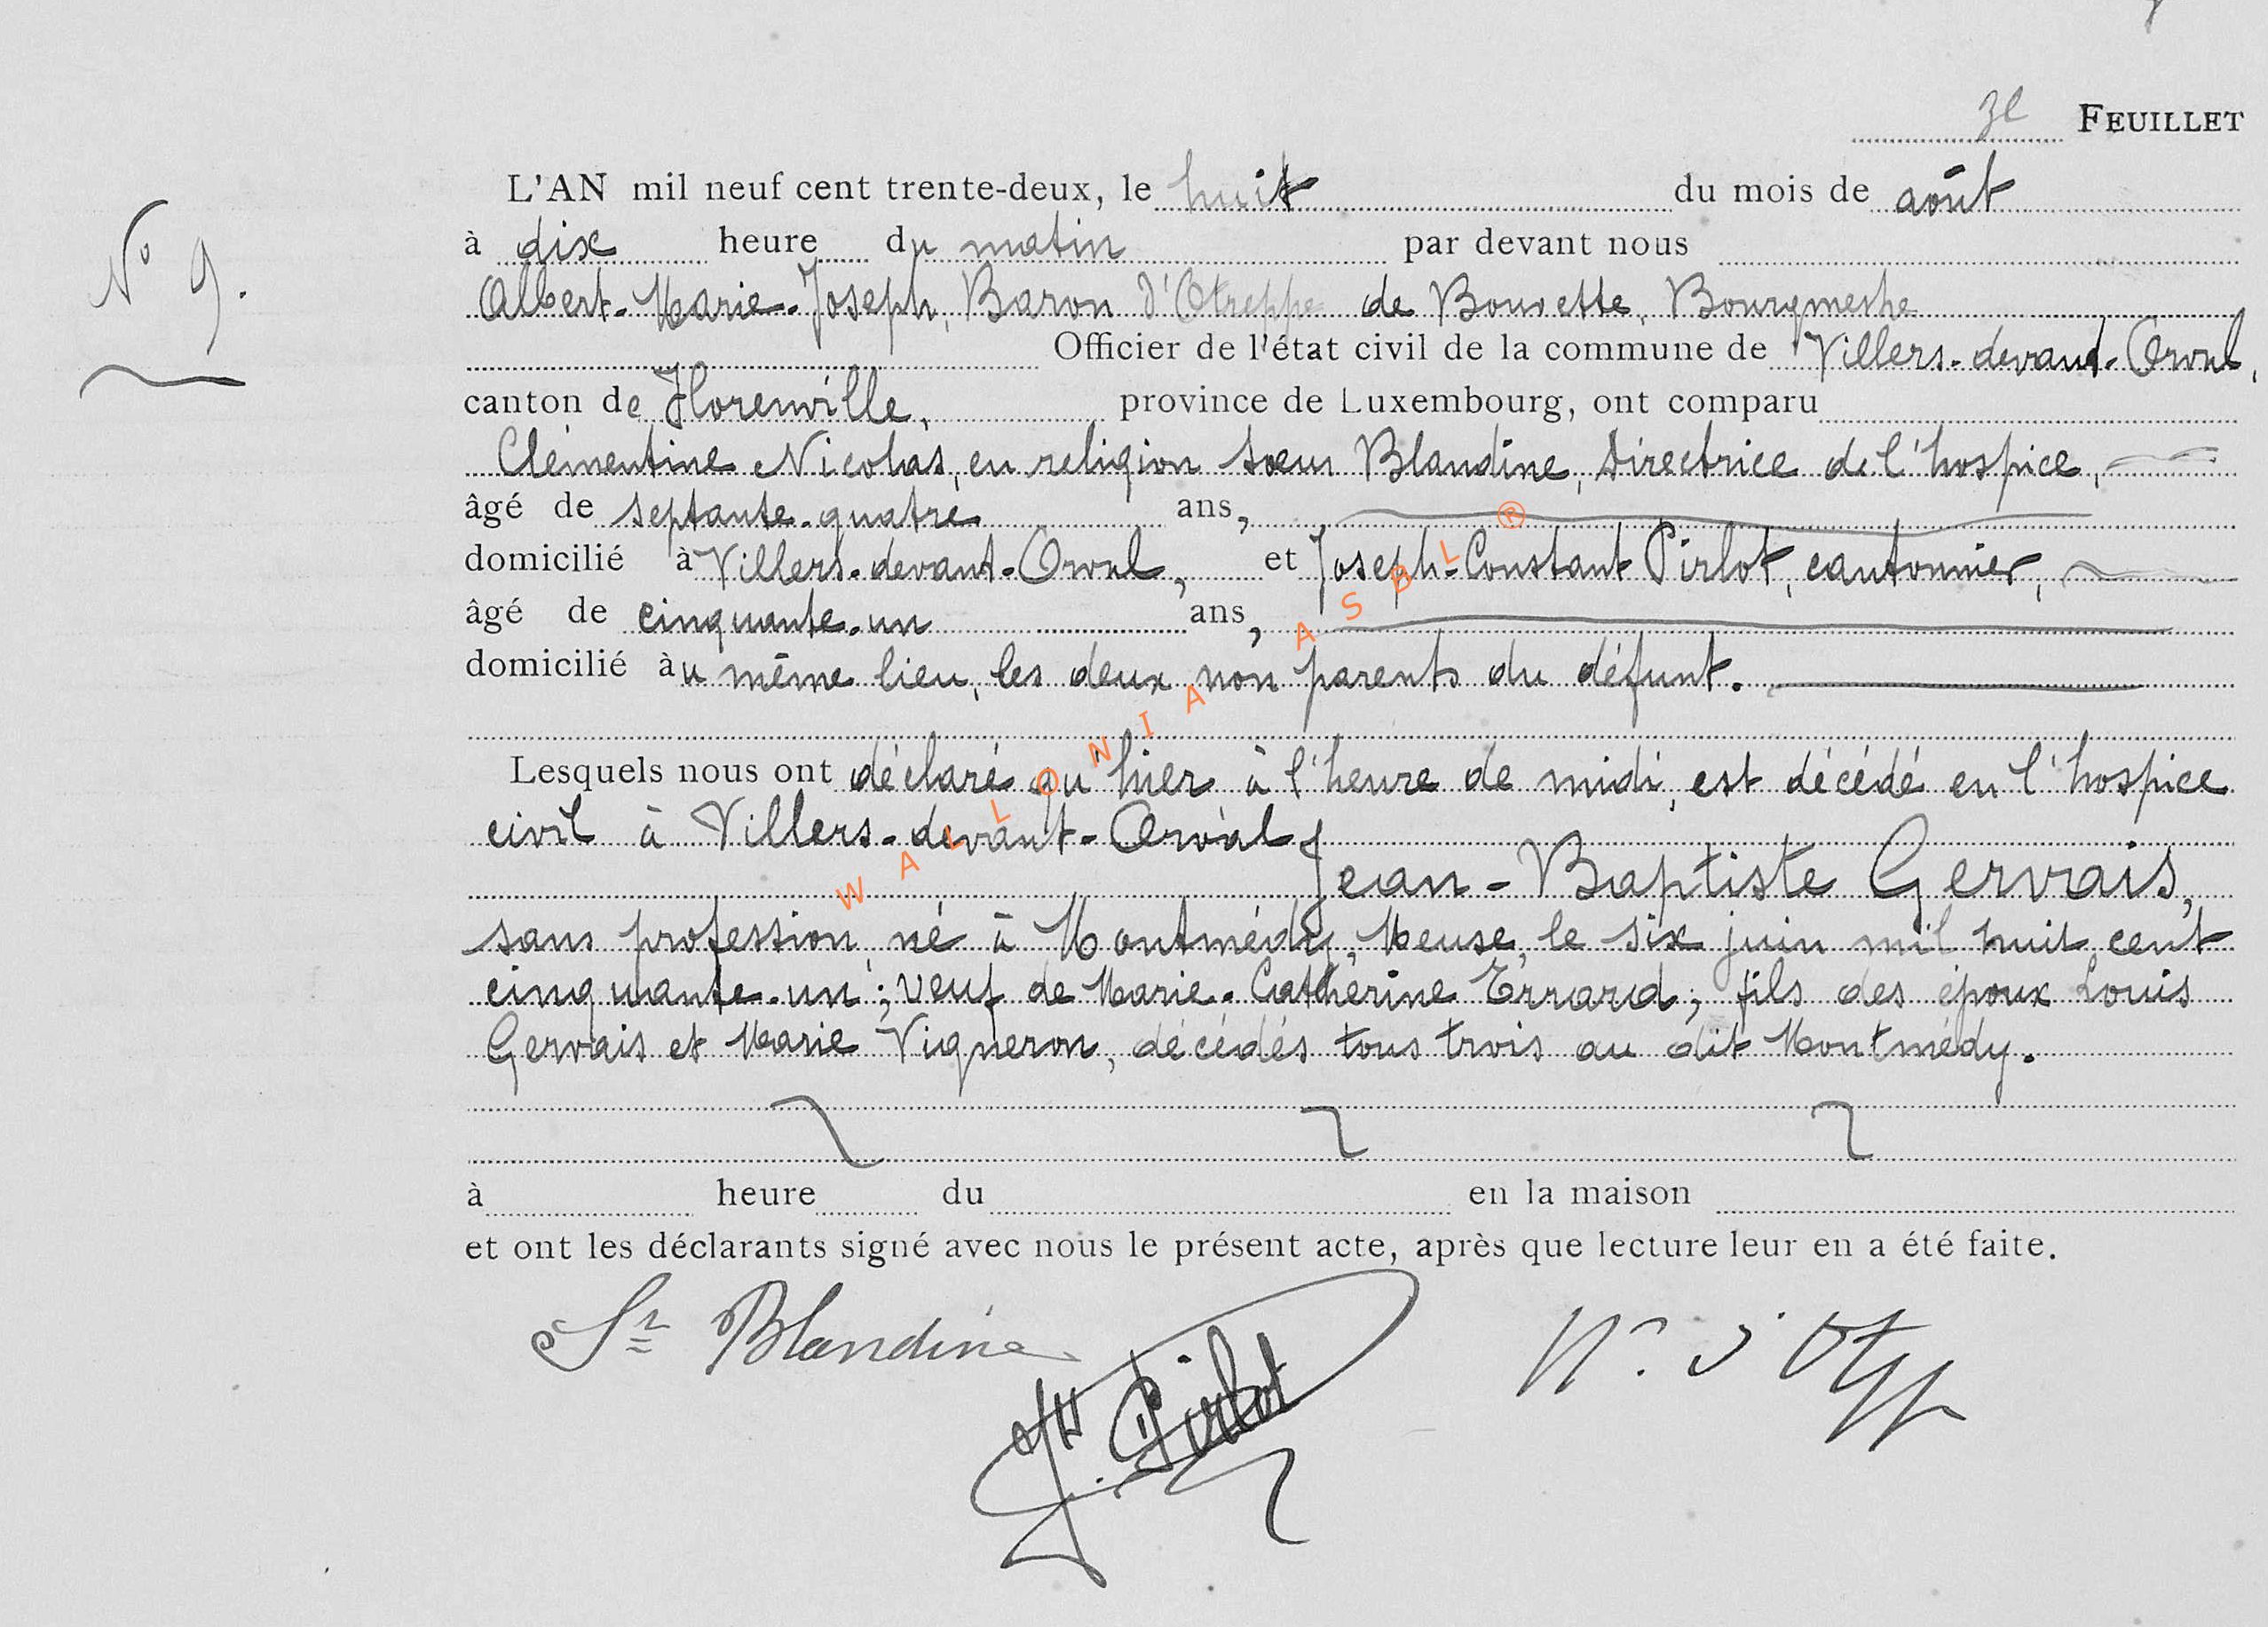 3e FEUILLET
L'AN mil neuf cent trente-deux, le huit du mois de août
N° 9.
à dix heure du matin par devant nous
Albert-Marie-Joseph, Baron d'Otreppe de Bouvette, Bourgmestre
Officier de l'état civil de la commune de Villers-devant-Orval,
canton de Florenville, province de Luxembourg, ont comparu
Clémentine Nicolas, en religion sœur Blandine, Directrice de l'hospice,
âgé de septante-quatre ans,
domicilié à Villers-devant-Orval, et Joseph-Constant Pirlot, cantonnier,
âgé de cinquante-un ans,
domicilié au même lieu, les deux non parents du défunt.
Lesquels nous ont déclaré qu'hier à l'heure de midi, est décédé en l'hospice
civil à Villers-devant-Orval
Jean-Baptiste Gervais,
sans profession, né à Montmédy, Meuse, le six juin mil huit cent
cinquante-un; veuf de Marie-Catherine Errard; fils des époux Louis
Gervais et Marie Vigneron, décédés tous trois au dit Montmédy.
à heure du en la maison
et ont les déclarants signé avec nous le présent acte, après que lecture leur en a été faite.
Sr Blandine
Pirlot
WALLONIA ASBL ®